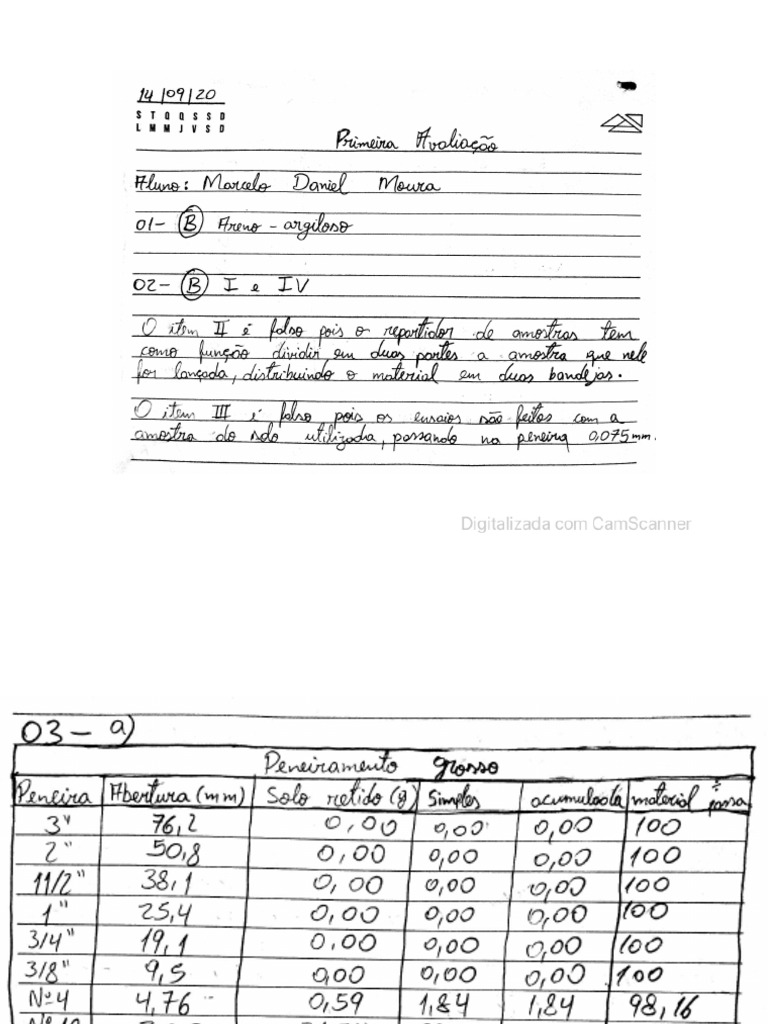 14/09/20
S T Q Q S S D
L M M J V S D
Primeira Avaliação
Aluno: Marcelo Daniel Moura
01- (B) Areno-argiloso
02- (B) I e IV
O item II é falso pois o repartidor de amostras tem
como função dividir em duas partes a amostra que nele
for lançada, distribuindo o material em duas bandejas.
O item III é falso pois os ensaios são feitos com a
amostra do solo utilizada, passando na peneira 0,075mm.
Digitalizada com CamScanner
03- a)
Peneiramento grosso
Peneira Abertura (mm) Solo retido (g) Simples acumulada material passa
3" 76,2 0,00 0,00 0,00 100
2" 50,8 0,00 0,00 0,00 100
11/2" 38,1 0,00 0,00 0,00 100
1" 25,4 0,00 0,00 0,00 100
3/4" 19,1 0,00 0,00 0,00 100
3/8" 9,5 0,00 0,00 0,00 100
Nº4 4,76 0,59 1,84 1,84 98,16